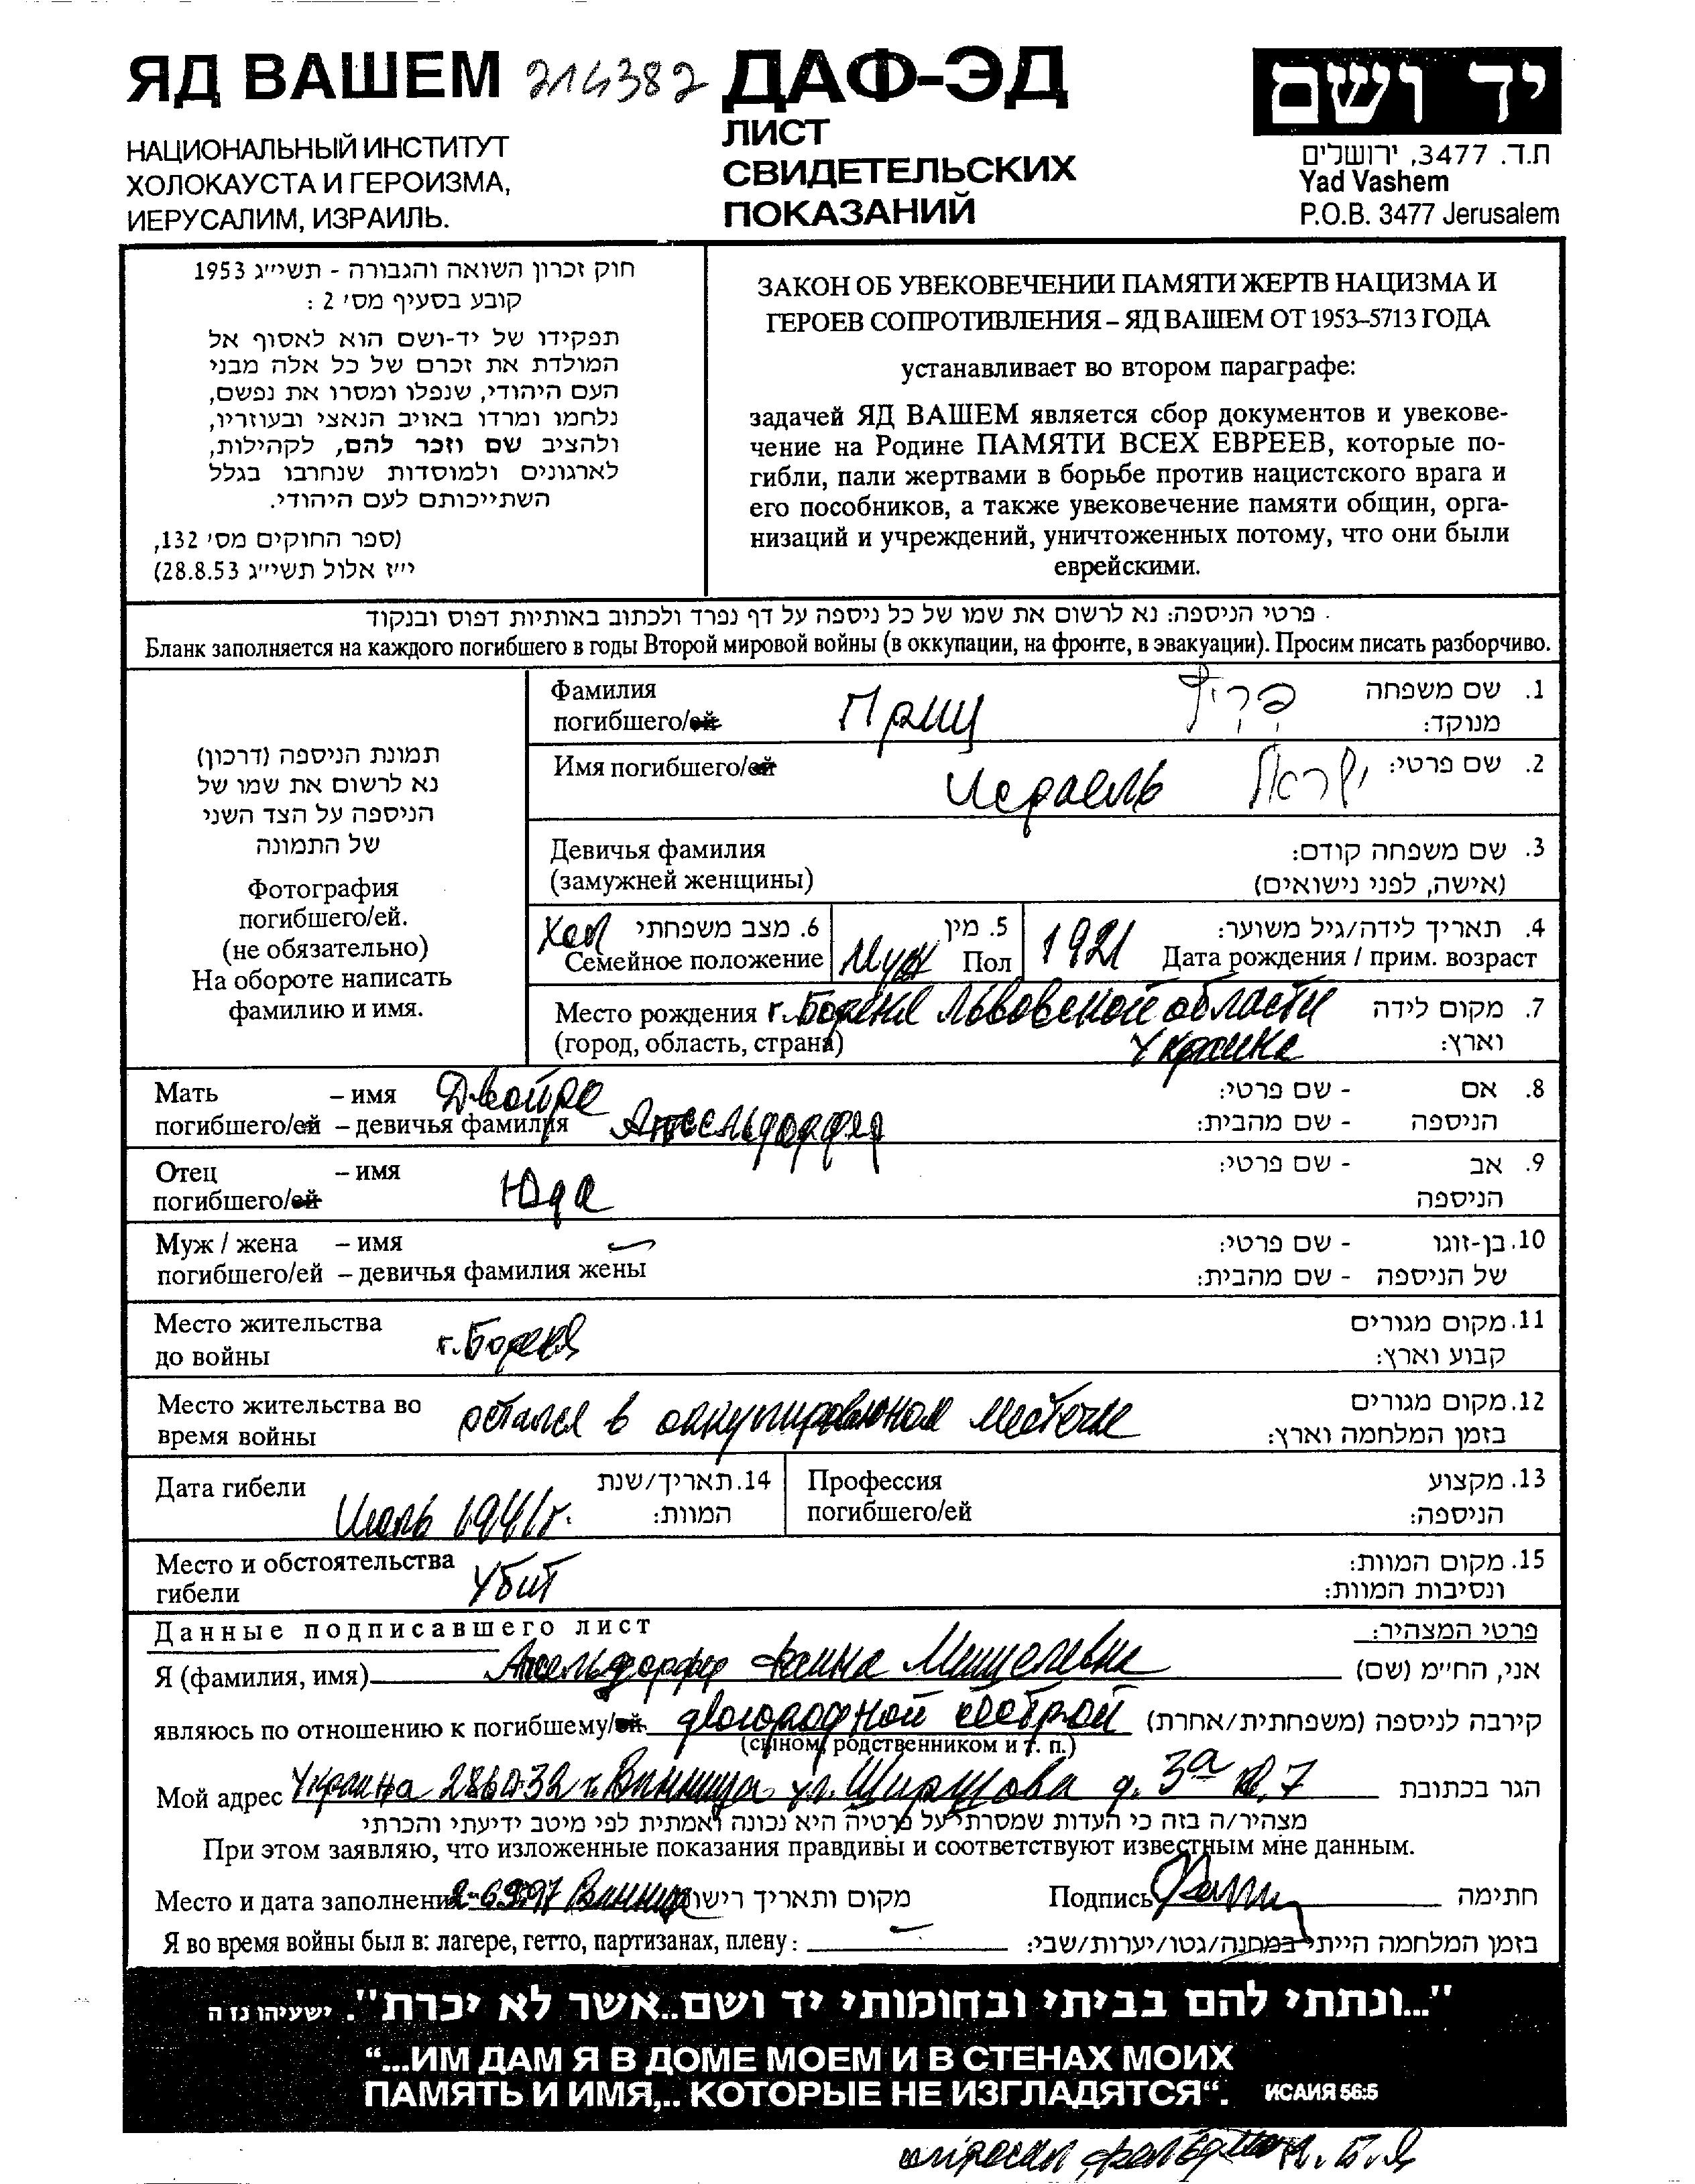 ЯД ВАШЕМ 214382 ДАФ-ЭД יד ושם
НАЦИОНАЛЬНЫЙ ИНСТИТУТ
ХОЛОКАУСТА И ГЕРОИЗМА,
ИЕРУСАЛИМ, ИЗРАИЛЬ.
ЛИСТ
СВИДЕТЕЛЬСКИХ
ПОКАЗАНИЙ
ת.ד. 3477, ירושלים
Yad Vashem
P.O.B. 3477 Jerusalem
חוק זכרון השואה והגבורה - תשי״ג 1953
קובע בסעיף מס׳ 2 :
תפקידו של יד-ושם הוא לאסוף אל
המולדת את זכרם של כל אלה מבני
העם היהודי, שנפלו ומסרו את נפשם,
נלחמו ומרדו באויב הנאצי ובעוזריו,
ולהציב שם וזכר להם, לקהילות,
לארגונים ולמוסדות שנחרבו בגלל
השתייכותם לעם היהודי.
(ספר החוקים מס׳ 132,
י״ז אלול תשי״ג 28.8.53)
ЗАКОН ОБ УВЕКОВЕЧЕНИИ ПАМЯТИ ЖЕРТВ НАЦИЗМА И
ГЕРОЕВ СОПРОТИВЛЕНИЯ – ЯД ВАШЕМ ОТ 1953–5713 ГОДА
устанавливает во втором параграфе:
задачей ЯД ВАШЕМ является сбор документов и увекове-
чение на Родине ПАМЯТИ ВСЕХ ЕВРЕЕВ, которые по-
гибли, пали жертвами в борьбе против нацистского врага и
его пособников, а также увековечение памяти общин, орга-
низаций и учреждений, уничтоженных потому, что они были
еврейскими.
פרטי הניספה: נא לרשום את שמו של כל ניספה על דף נפרד ולכתוב באותיות דפוס ובנקוד
Бланк заполняется на каждого погибшего в годы Второй мировой войны (в оккупации, на фронте, в эвакуации). Просим писать разборчиво.
תמונת הניספה (דרכון)
נא לרשום את שמו של
הניספה על הצד השני
של התמונה
Фотография
погибшего/ей.
(не обязательно)
На обороте написать
фамилию и имя.
Фамилия 1. שם משפחה
погибшего/ейПриц פריץ מנוקד:
Имя погибшего/ей Исраель ישראל 2. שם פרטי:
Девичья фамилия 3. שם משפחה קודם:
(замужней женщины) (אישה, לפני נישואים)
Хол 6. מצב משפחתי 5. מין 1921 4. תאריך לידה/גיל משוער:
Семейное положение Муж Пол Дата рождения / прим. возраст
Место рождения г. Львовской области 7. מקום לידה
(город, область, страна) Украина וארץ:
Мать – имя Двойра 8. אם - שם פרטי:
погибшего/ей – девичья фамилия Апсельдорфер הניספה - שם מהבית:
Отец – имя Юда 9. אב - שם פרטי:
погибшего/ей הניספה
Муж / жена – имя 10. בן-זוגו - שם פרטי:
погибшего/ей – девичья фамилия жены של הניספה - שם מהבית:
Место жительства 11. מקום מגורים
до войны קבוע וארץ:
Место жительства во остался в оккупированом местечке 12. מקום מגורים
время войны בזמן המלחמה וארץ:
Дата гибели Июль 1941г. 14. תאריך/שנת המוות:
Профессия 13. מקצוע
погибшего/ей הניספה:
Место и обстоятельства Убит 15. מקום המוות:
гибели ונסיבות המוות:
Данные подписавшего лист פרטי המצהיר:
Я (фамилия, имя) Апсельдорфер Фаина אני, הח״מ (שם)
являюсь по отношению к погибшему/ей двоюродной сестрой קירבה לניספה (משפחתית/אחרת)
(сыном, родственником и т. п.)
Мой адрес Украина 286032 г. Винница ул. Ширшова д. 3а кв. 7 הגר בכתובת
מצהיר/ה בזה כי העדות שמסרתי על פרטיה היא נכונה ואמתית לפי מיטב ידיעתי והכרתי
При этом заявляю, что изложенные показания правдивы и соответствуют известным мне данным.
Место и дата заполнения Винница מקום ותאריך רישום Подпись חתימה
Я во время войны был в: лагере, гетто, партизанах, плену: בזמן המלחמה הייתי במחנה/גטו/יערות/שבי:
"...ונתתי להם בביתי ובחומותי יד ושם..אשר לא יכרת". ישעיהו נז ה
“...ИМ ДАМ Я В ДОМЕ МОЕМ И В СТЕНАХ МОИХ
ПАМЯТЬ И ИМЯ,.. КОТОРЫЕ НЕ ИЗГЛАДЯТСЯ“. ИСАИЯ 56:5